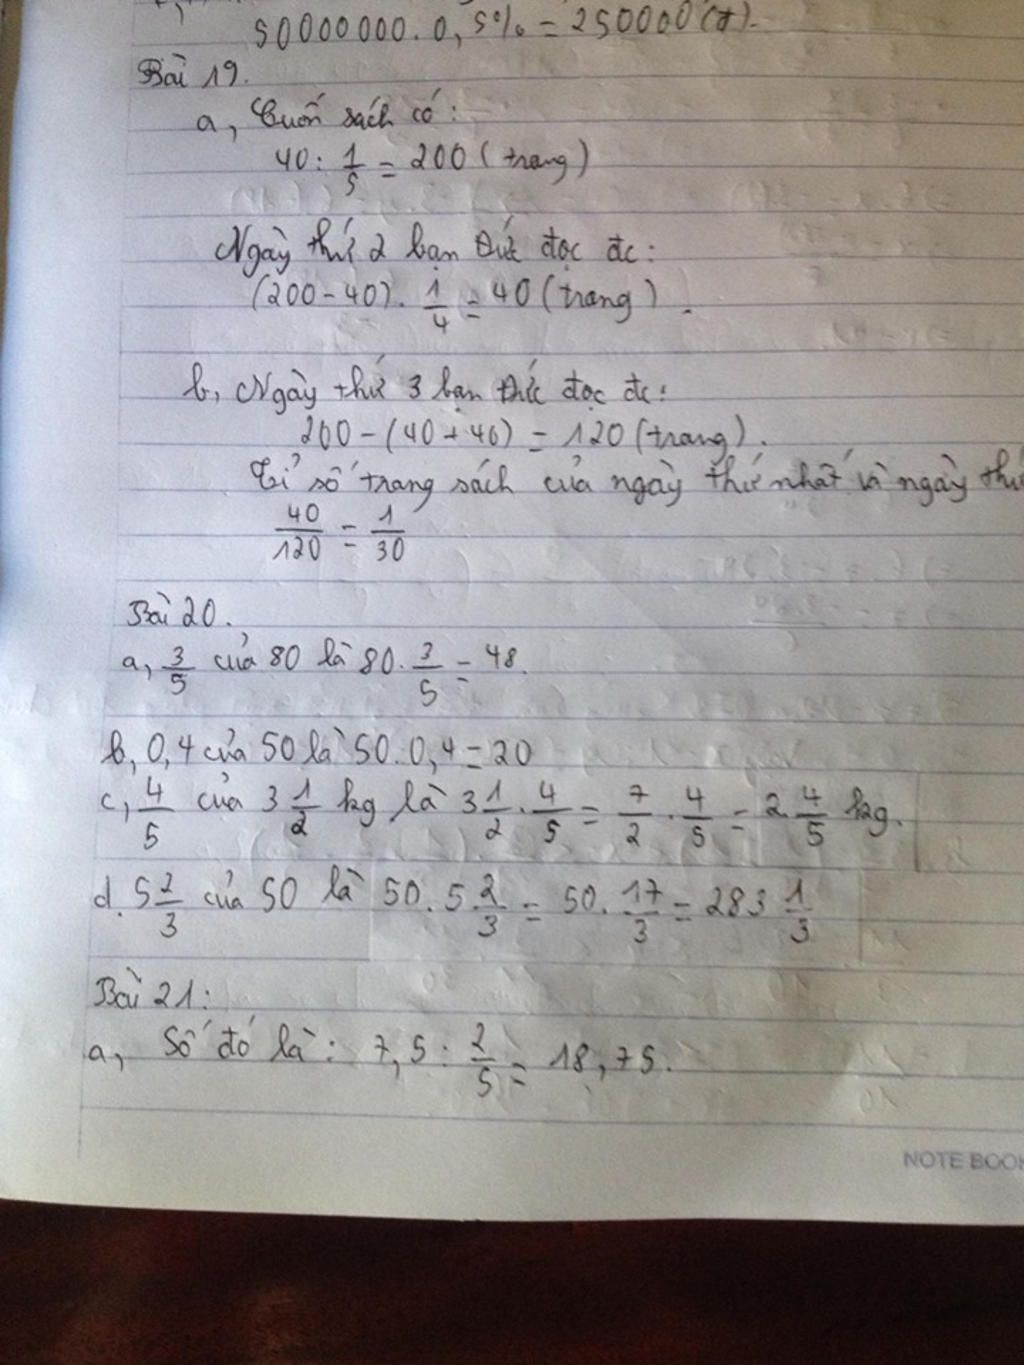 50000000.0,5% = 250000(đ).
Bài 19.
a, Cuốn sách có:
40 : 1/5 = 200 (trang)
Ngày thứ 2 bạn Đức đọc đc:
(200-40). 1/4 = 40 (trang).
b, Ngày thứ 3 bạn Đức đọc đc:
200-(40+40) = 120 (trang).
Tỉ số trang sách của ngày thứ nhất và ngày thứ
40/120 = 1/30
Bài 20.
a, 3/5 của 80 là 80. 3/5 = 48.
b, 0,4 của 50 là 50.0,4=20
c, 4/5 của 3 1/2 kg là 3 1/2 . 4/5 = 7/2 . 4/5 = 2 4/5 kg.
d. 5 2/3 của 50 là 50. 5 2/3 = 50. 17/3 = 283 1/3
Bài 21:
a, Số đó là: 7,5 : 2/5 = 18,75.
NOTE BOOK